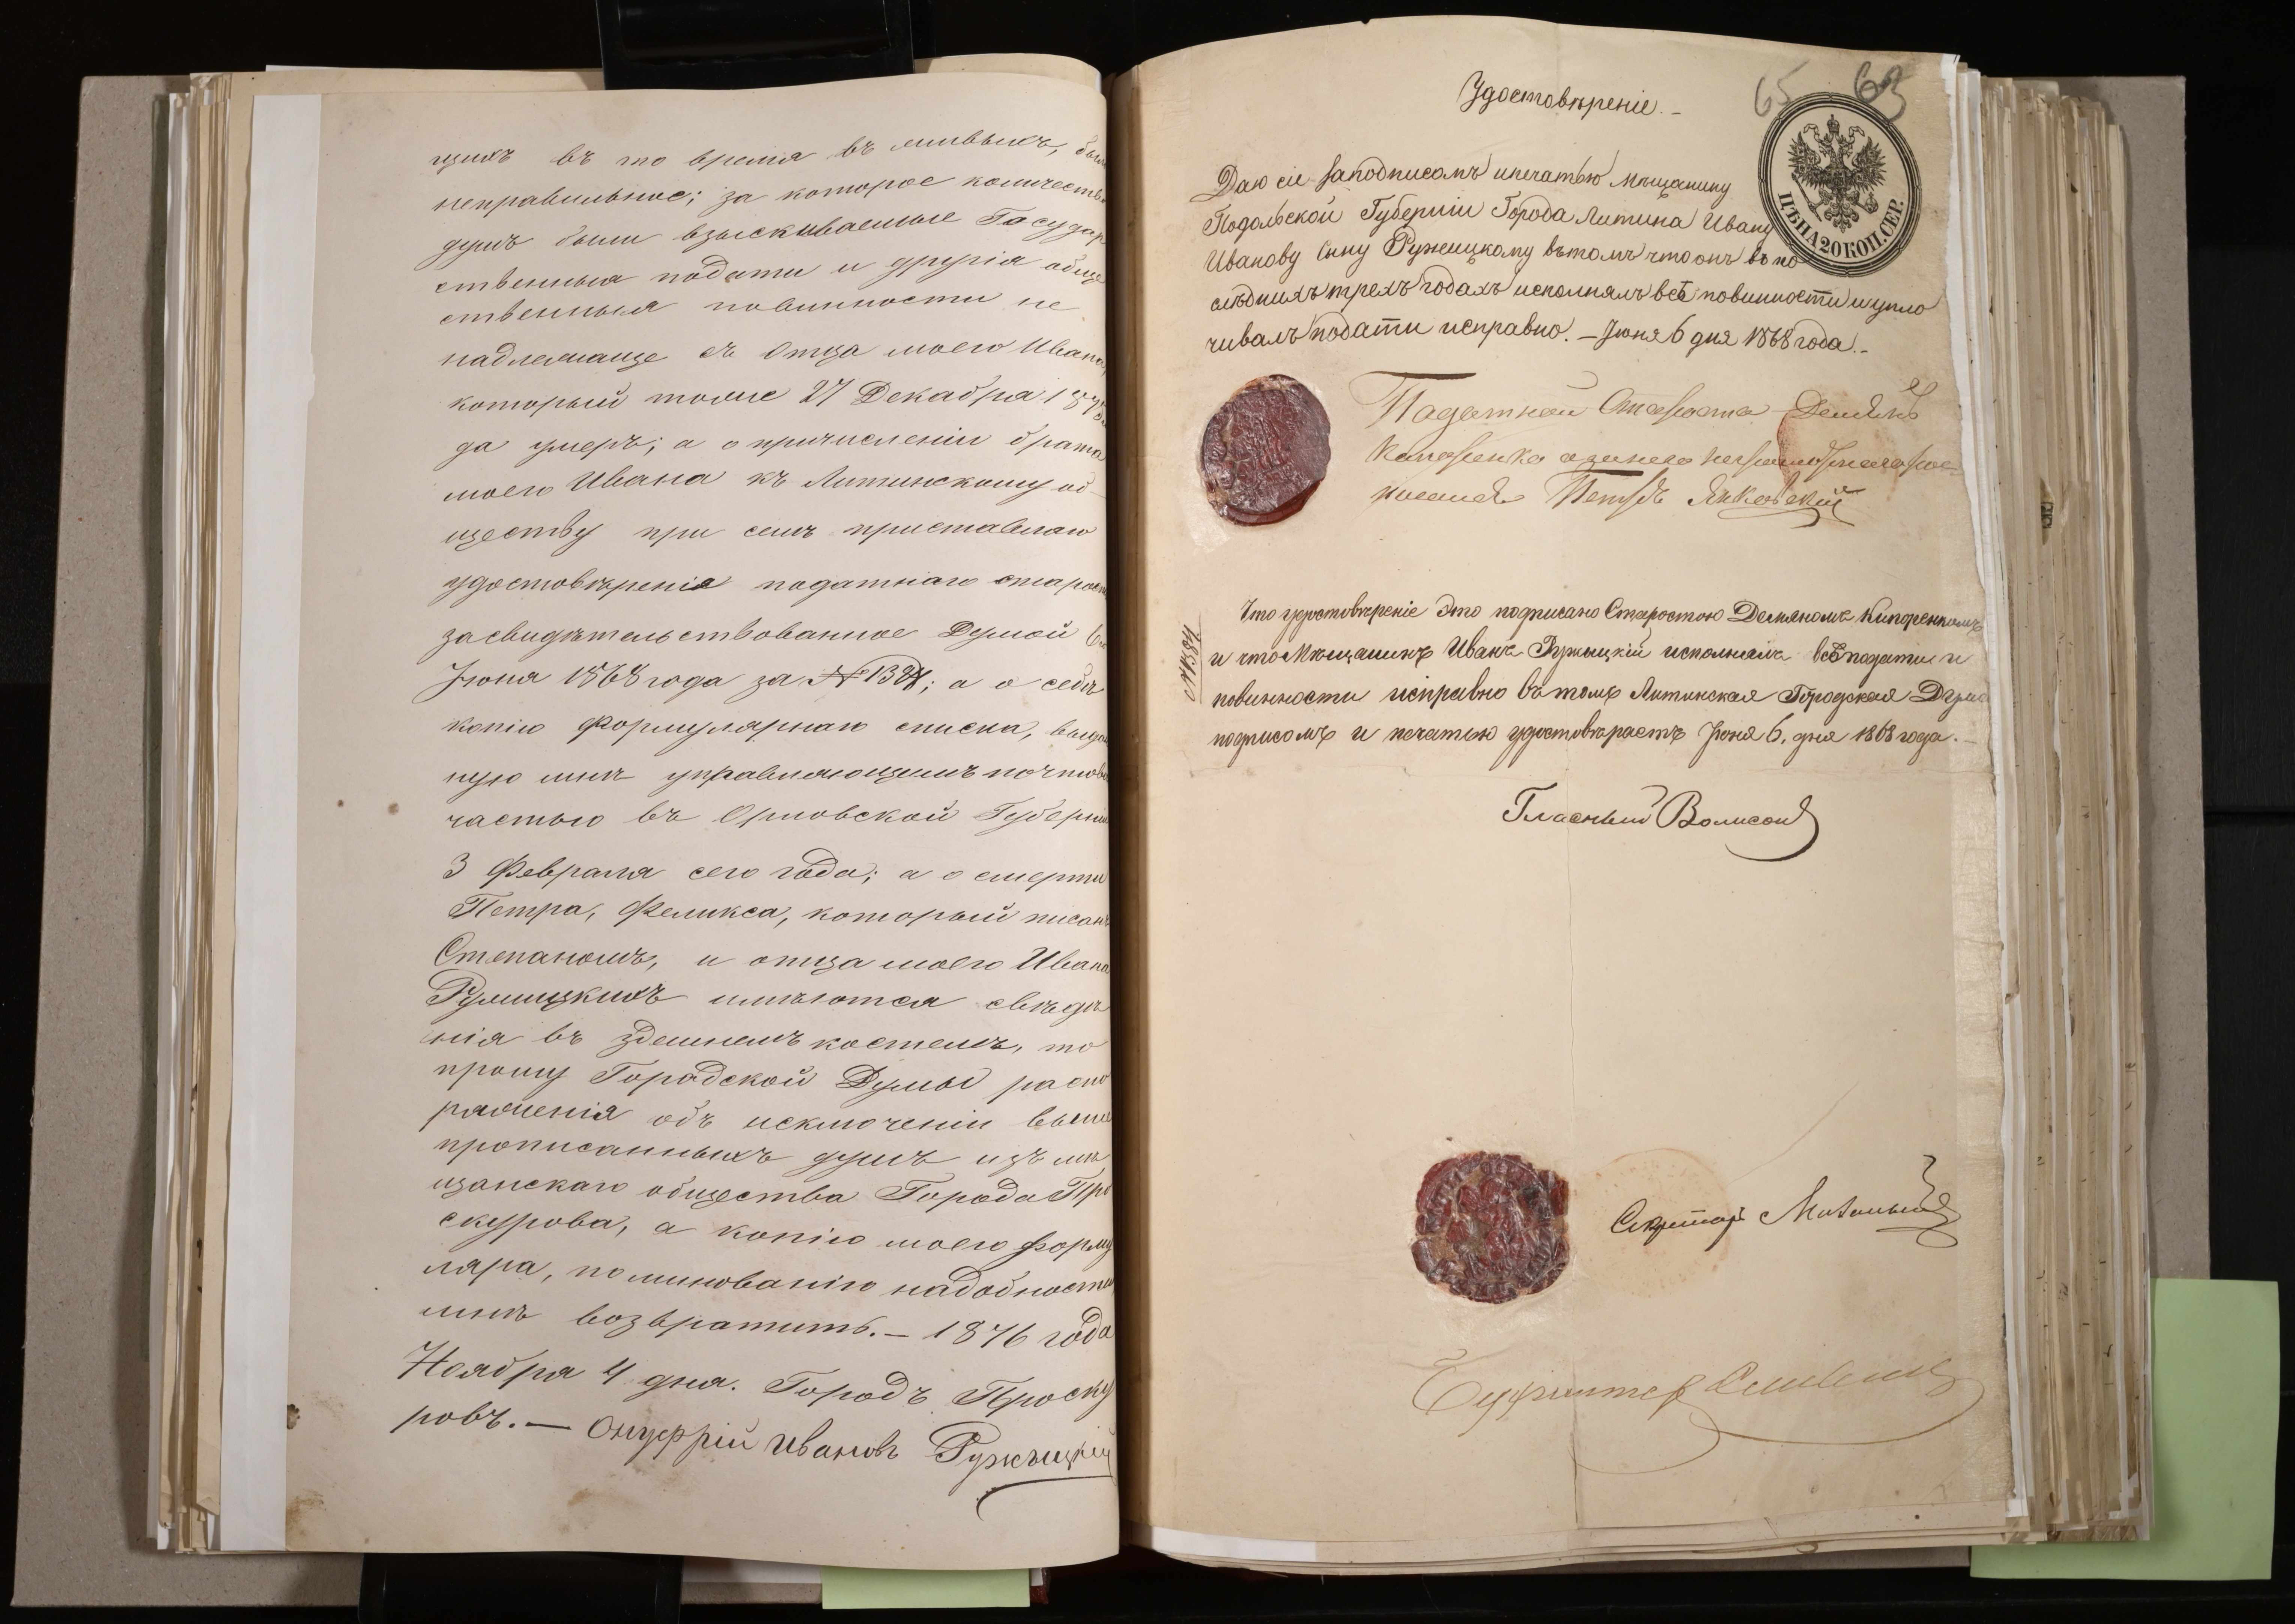 щихъ въ то время въ живыхъ, было
неправильное; за которое количество
душъ были взыскиваемые Государ
ственныя подати и другія обще
ственныя повинности не
надлежаще съ Отца моего Ивана,
который тоже 27 Декабря
да умеръ; а о причисленіи брата
моего Ивана къ Литинскому об-
ществу при семъ приставляю
удостовѣреніе податнаго старосты
засвидѣтельствованное Думой 6го
Іюня 1868 года за №1384; а о себѣ
копію Формулярнаго списка, выдан
ную мнѣ управляющимъ почтовой
частью въ Орловской Губерніи
3 Февраля сего года; а о смерти
Петра, Феликса, который писанъ
Степаномъ, и отца моего Ивана
Ружицкихъ имѣются свѣдѣ
нія въ здешнемъ костелѣ, то
прошу Городской Думы распо
ряженія объ исключеніи выше
прописанныхъ душъ изъ мѣ
щанскаго общества Города Про
скурова, а копію моего форму
ляра, по минованію надобности
мнѣ возвратить.— 1876 года
Ноября 4 дня. Городъ Проску
ровъ.— Онуфрій Ивановъ Ружицкій
65 63
Удостовѣреніе.-
ЦѢНА 20 КОП. СЕР.
Даю сіе заподписомъ ипечатью мѣщанину
Подольской Губерніи Города Литина Ивану
Иванову Сыну Ружицкому вътомъ что онъ въ по
слѣднихъ трехъ годахъ исполнялъ всѣ повинности и упло
чивалъ подати исправно.— Іюня 6 дня 1868 года.-
Подотной Староста Демянъ
Капоренко а занего неграмотнаго рос
писался Петръ Янковскій
№1384
Что удостовѣреніе Это подписано Старостою Демяномъ Кипоренкомъ
и что Мѣщанинъ Иванъ Ружицкій исполнялъ всѣ подати и
повинности исправно въ томъ Литинская Городская Дума
подписомъ и печатью удостовѣряетъ Іюня 6, дня 1868 года.—
Гласный
Секретарь
Бухгалтер